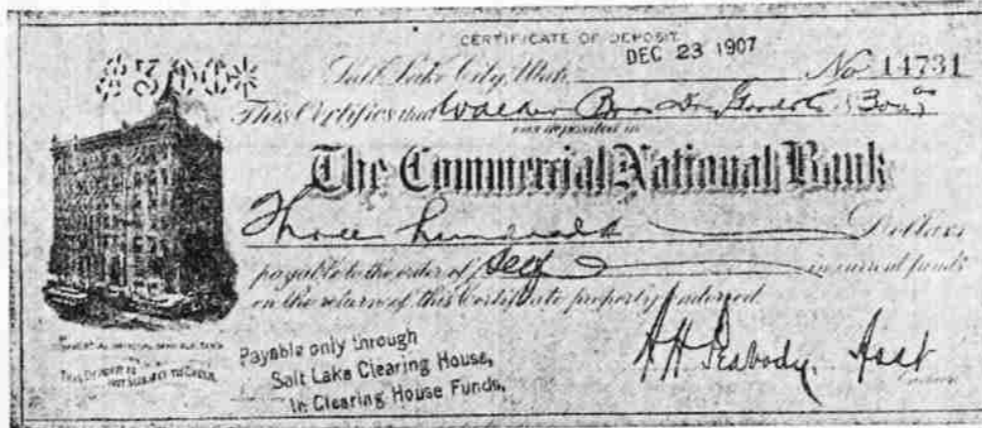 CERTIFICATE OF DEPOSIT
DEC 23 1907
Salt Lake City, Utah, No 14731
This Certifies that Walker Bros Dry Goods Co $300 00
was deposited in
The Commercial National Bank
Three hundred Dollars
payable to the order of Self in current funds
on the return of this Certificate properly endorsed.
Payable only through
Salt Lake Clearing House,
In Clearing House Funds.
A H Peabody, Asst
Cashier
NOT SUBJECT TO CHECK